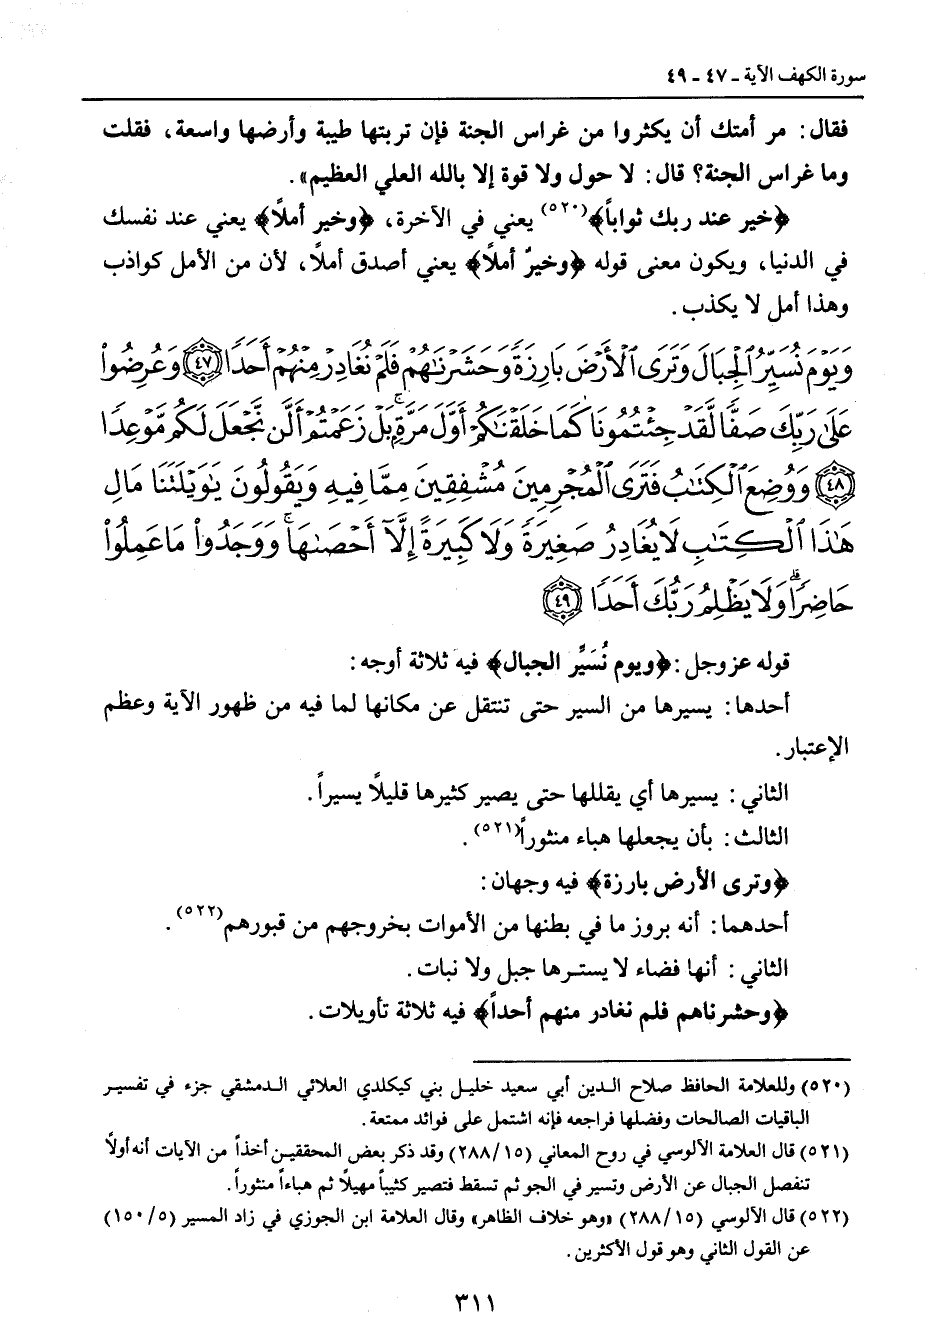 سورة الكهف الآية ـ ٤٧ ـ ٤٩
فقال: مر أمتك أن يكثروا من غراس الجنة فإن تربتها طيبة وأرضها واسعة، فقلت
وما غراس الجنة؟ قال: لا حول ولا قوة إلا بالله العلي العظيم».
﴿خير عند ربك ثواباً﴾(٥٢٠) يعني في الآخرة، ﴿وخير أملاً﴾ يعني عند نفسك
في الدنيا، ويكون معنى قوله ﴿وخيرٌ أملاً﴾ يعني أصدق أملاً، لأن من الأمل كواذب
وهذا أمل لا يكذب.
وَيَوْمَ نُسَيِّرُ ٱلْجِبَالَ وَتَرَى ٱلْأَرْضَ بَارِزَةً وَحَشَرْنَٰهُمْ فَلَمْ نُغَادِرْ مِنْهُمْ أَحَدًا ﴿٤٧﴾ وَعُرِضُوا۟
عَلَىٰ رَبِّكَ صَفًّا لَّقَدْ جِئْتُمُونَا كَمَا خَلَقْنَٰكُمْ أَوَّلَ مَرَّةٍۭ ۚ بَلْ زَعَمْتُمْ أَلَّن نَّجْعَلَ لَكُم مَّوْعِدًا
﴿٤٨﴾ وَوُضِعَ ٱلْكِتَٰبُ فَتَرَى ٱلْمُجْرِمِينَ مُشْفِقِينَ مِمَّا فِيهِ وَيَقُولُونَ يَٰوَيْلَتَنَا مَالِ
هَٰذَا ٱلْكِتَٰبِ لَا يُغَادِرُ صَغِيرَةً وَلَا كَبِيرَةً إِلَّآ أَحْصَىٰهَا ۚ وَوَجَدُوا۟ مَا عَمِلُوا۟
حَاضِرًا ۗ وَلَا يَظْلِمُ رَبُّكَ أَحَدًا ﴿٤٩﴾
قوله عز وجل: ﴿ويوم نُسَيِّر الجبال﴾ فيه ثلاثة أوجه:
أحدها: يسيرها من السير حتى تنتقل عن مكانها لما فيه من ظهور الآية وعظم
الإعتبار.
الثاني: يسيرها أي يقللها حتى يصير كثيرها قليلاً يسيراً.
الثالث: بأن يجعلها هباء منثوراً(٥٢١).
﴿وترى الأرض بارزة﴾ فيه وجهان:
أحدهما: أنه بروز ما في بطنها من الأموات بخروجهم من قبورهم(٥٢٢).
الثاني: أنها فضاء لا يسترها جبل ولا نبات.
﴿وحشرناهم فلم نغادر منهم أحداً﴾ فيه ثلاثة تأويلات.
(٥٢٠) وللعلامة الحافظ صلاح الدين أبي سعيد خليل بني كيكلدي العلائي الدمشقي جزء في تفسير
الباقيات الصالحات وفضلها فراجعه فإنه اشتمل على فوائد ممتعة.
(٥٢١) قال العلامة الآلوسي في روح المعاني (٢٨٨/١٥) وقد ذكر بعض المحققين أخذاً من الآيات أنه أولاً
تنفصل الجبال عن الأرض وتسير في الجو ثم تسقط فتصير كثيباً مهيلاً ثم هباءاً منثوراً.
(٥٢٢) قال الآلوسي (٢٨٨/١٥) «وهو خلاف الظاهر» وقال العلامة ابن الجوزي في زاد المسير (١٥٠/٥)
عن القول الثاني وهو قول الأكثرين.
٣١١